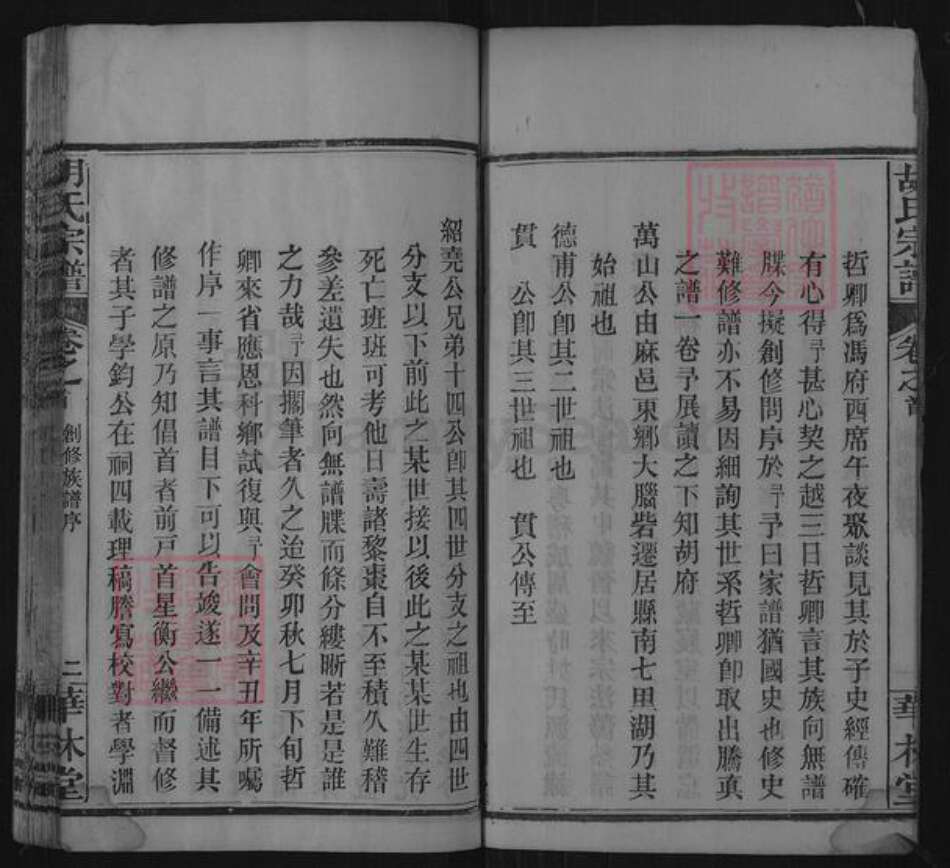 胡氏宗譜
卷之首
華林堂
哲卿爲馮府西席午夜聚談見其於子史經傳確
有心得予甚心契之越三日哲卿言其族向無譜
牒今擬創修問序於予予曰家譜猶國史也修史
難修譜亦不易因細詢其世系哲卿卽取出騰眞
之譜一卷予展讀之下知胡府
萬山公由麻邑東鄉大腦砦遷居縣南七里湖乃其
始祖也
德甫公卽其二世祖也
貫 公卽其三世祖也 貫公傳至
紹堯公兄弟十四公卽其四世分支之祖也由四世
分支以下前此之某世接以後此之某某世生存
死亡班班可考他日壽諸黎棗自不至積久難稽
參差遺失也然向無譜牒而條分縷晰若是是誰
之力哉予因擱筆者久之迨癸卯秋七月下旬哲
卿來省應恩科鄉試復與予會問及辛丑年所囑
作序一事言其譜目下可以告竣遂一一備述其
修譜之原乃知倡首者前戶首星衡公繼而督修
者其子學鈞公在祠四載理稿謄寫校對者學淵
胡氏宗譜
卷之首
創修族譜序
二
華林堂